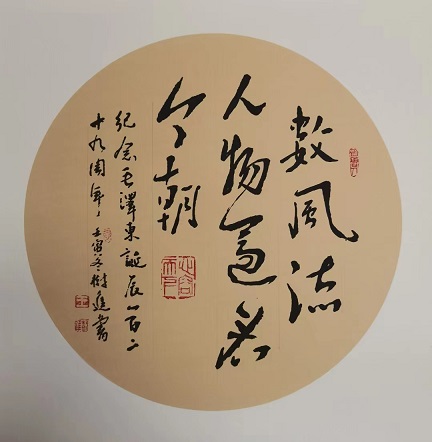 数風流
人物還看
今朝
紀念毛澤東誕辰一百二
十九周年壬寅冬樹進書